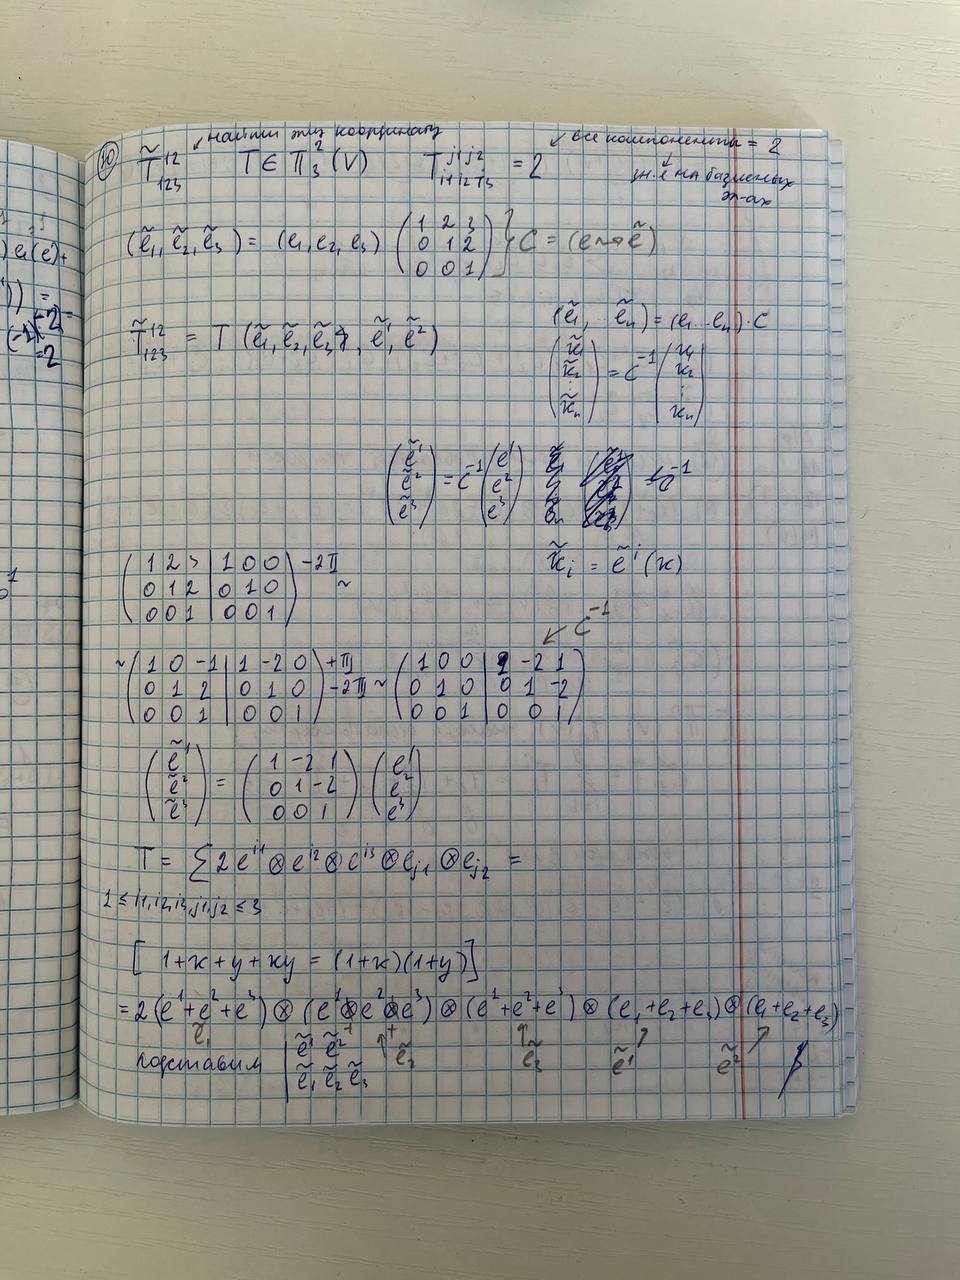 10) T̃¹²₁₂₃ найти эту координату T ∈ Π₃²(V) T^{j1 j2}_{i1 i2 i3} = 2 все компоненты = 2
зн. е на базисных
эл-ах
(ẽ₁, ẽ₂, ẽ₃) = (e₁, e₂, e₃) ( 1 2 3
0 1 2
0 0 1 ) } C = (e ⇝ ẽ)
T̃¹²₁₂₃ = T (ẽ₁, ẽ₂, ẽ₃, ẽ¹, ẽ²)
(ẽ₁, … ẽₙ) = (e₁ … eₙ) · C
( x̃₁ x̃₂ ⋮ x̃ₙ ) = C⁻¹ ( x₁ x₂ ⋮ xₙ )
( ẽ¹ ẽ² ẽ³ ) = C⁻¹ ( e¹ e² e³ )
x̃ᵢ = ẽⁱ (x)
( 1 2 3 | 1 0 0 ) −2II
( 0 1 2 | 0 1 0 ) ~
( 0 0 1 | 0 0 1 )
C⁻¹
~ ( 1 0 −1 | 1 −2 0 ) +III ( 1 0 0 | 1 −2 1 )
( 0 1 2 | 0 1 0 ) −2III ~ ( 0 1 0 | 0 1 −2 )
( 0 0 1 | 0 0 1 ) ( 0 0 1 | 0 0 1 )
( ẽ¹ ) ( 1 −2 1 ) ( e¹ )
( ẽ² ) = ( 0 1 −2 ) ( e² )
( ẽ³ ) ( 0 0 1 ) ( e³ )
T = Σ 2 e^{i1} ⊗ e^{i2} ⊗ e^{i3} ⊗ e_{j1} ⊗ e_{j2} =
1 ≤ i1, i2, i3, j1, j2 ≤ 3
[ 1 + x + y + xy = (1+x)(1+y) ]
= 2 (e¹ + e² + e³) ⊗ (e¹ + e² + e³) ⊗ (e¹ + e² + e³) ⊗ (e₁ + e₂ + e₃) ⊗ (e₁ + e₂ + e₃)
ẽ₁ ẽ₂ ẽ₃ ẽ¹ ẽ²
подставим | ẽ¹ ẽ²
ẽ₁ ẽ₂ ẽ₃